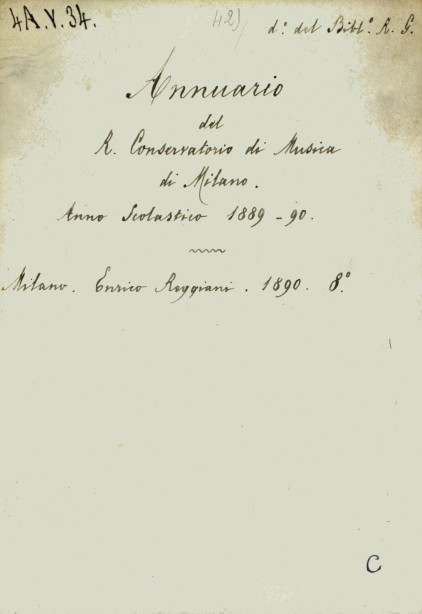 4A.V.34.
42)
d.º del Bibl.º R. G.
Annuario
del
R. Conservatorio di Musica
di Milano.
Anno Scolastico 1889-90.
Milano. Enrico Reggiani. 1890. 8.º
C